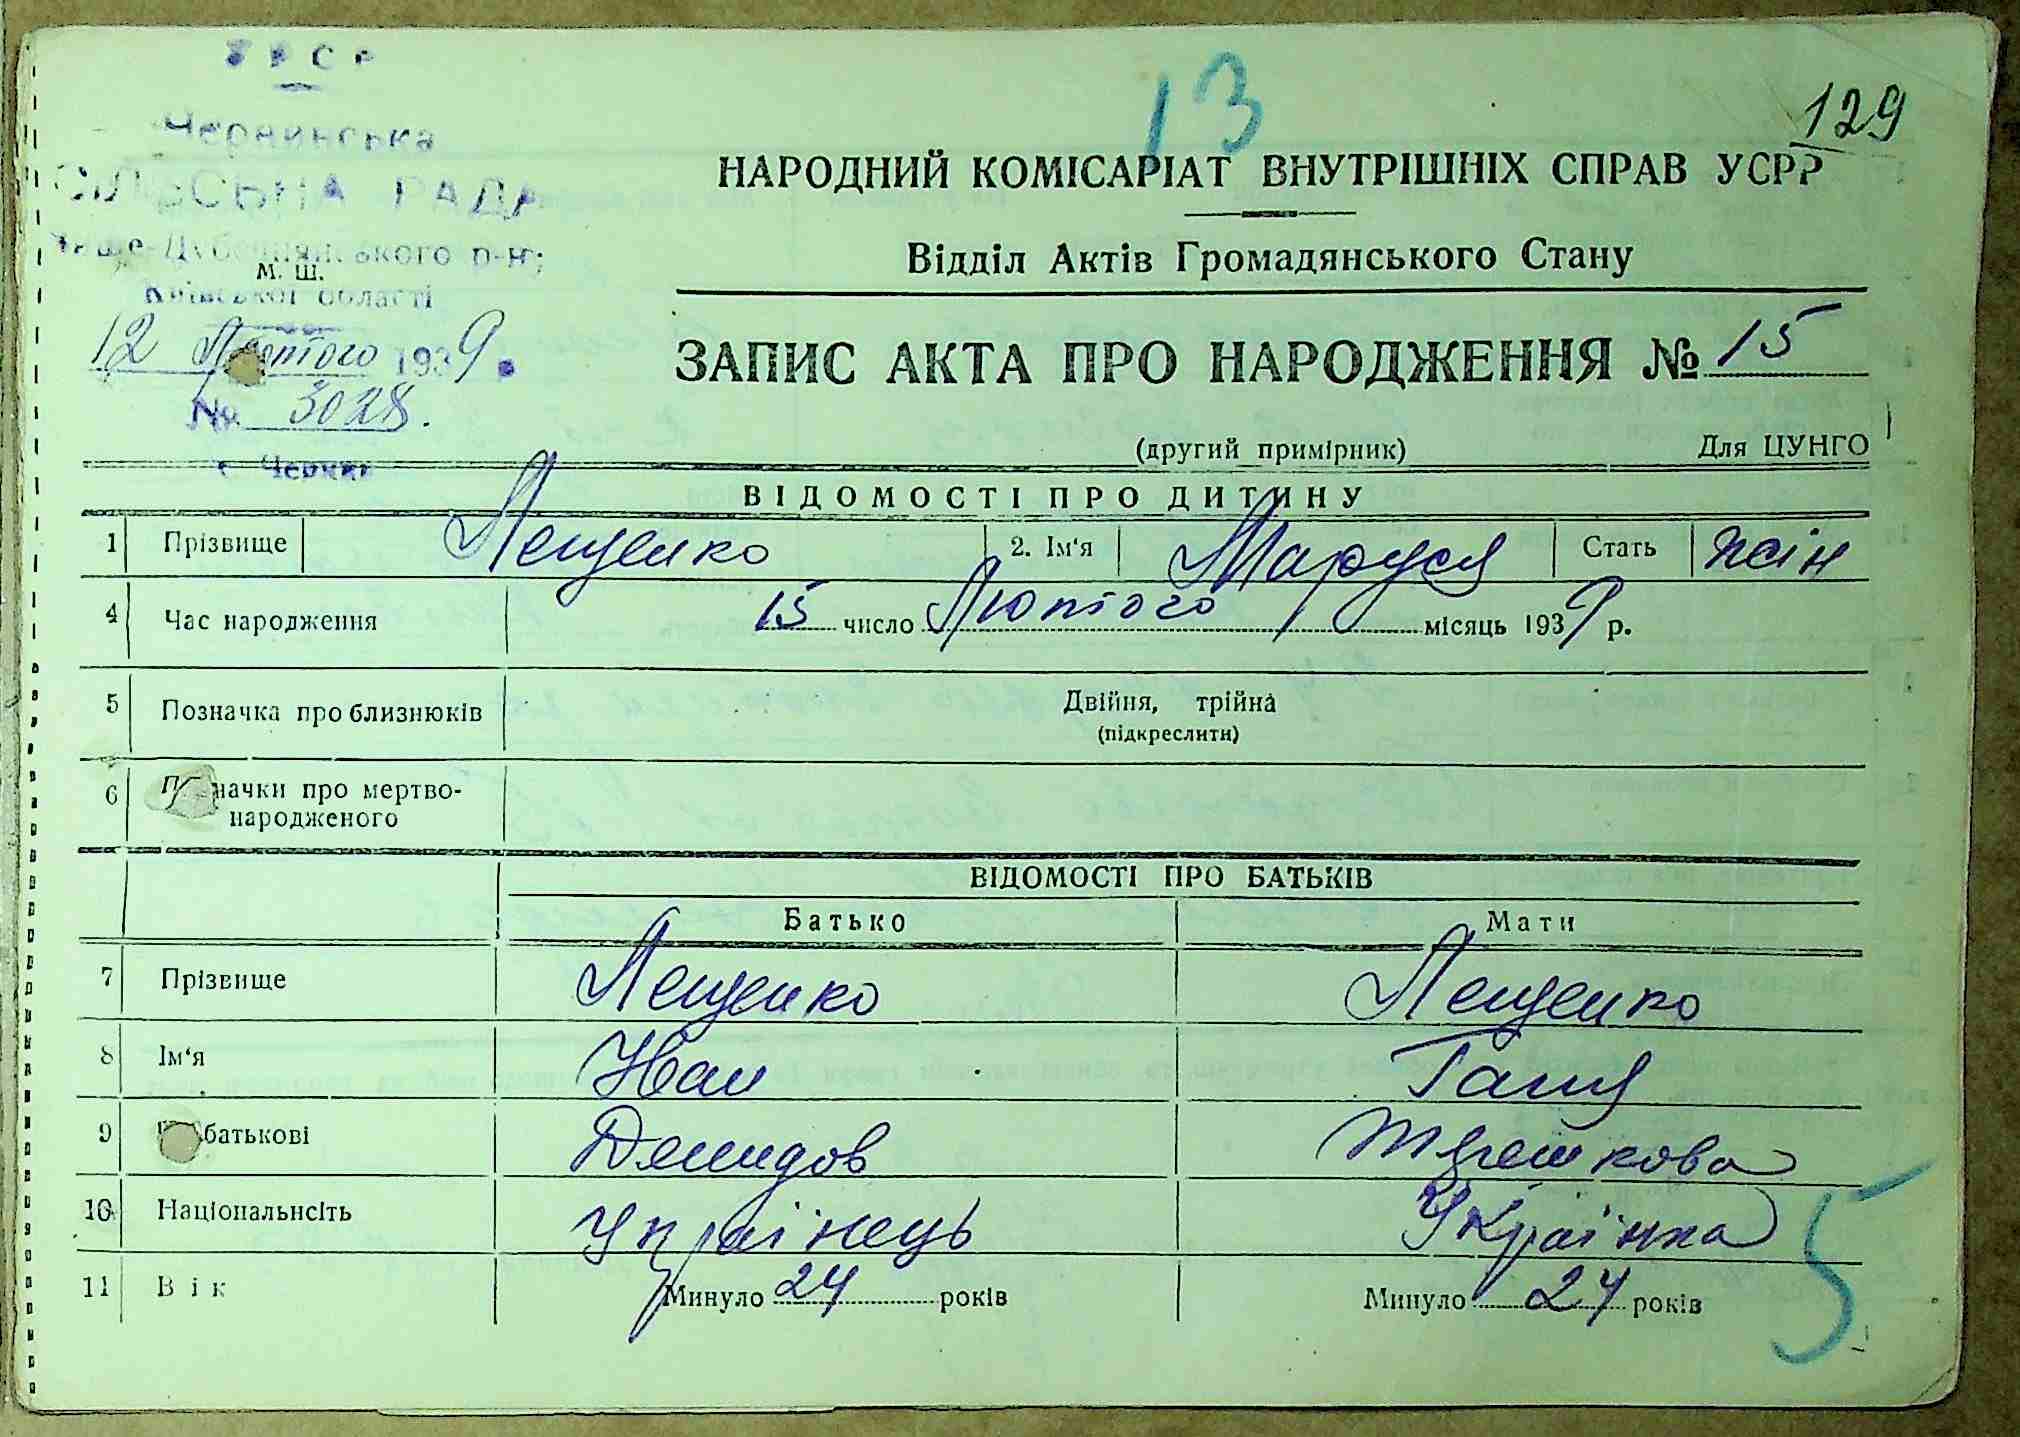 УРСР
13
129
Чернинська
СІЛЬСЬКА РАДА
Више-Дубечнянського р-ну
Київської області
м. ш.
12 Лютого 1939.
№ 3028.
с. Чернин
НАРОДНИЙ КОМІСАРІАТ ВНУТРІШНІХ СПРАВ УСРР
Відділ Актів Громадянського Стану
ЗАПИС АКТА ПРО НАРОДЖЕННЯ № 15
(другий примірник) Для ЦУНГО
ВІДОМОСТІ ПРО ДИТИНУ
1 Прізвище Лещенко 2. Ім'я Маруся Стать жін
4 Час народження 15 число Лютого місяць 1939 р.
5 Позначка про близнюків Двійня, трійна
(підкреслити)
6 Позначки про мертво-
народженого
ВІДОМОСТІ ПРО БАТЬКІВ
Батько Мати
7 Прізвище Лещенко Лещенко
8 Ім'я Иван Ганя
9 По батькові Демидов
10 Національнсіть Українець Українка
11 Вік Минуло 24 років Минуло 24 років
5